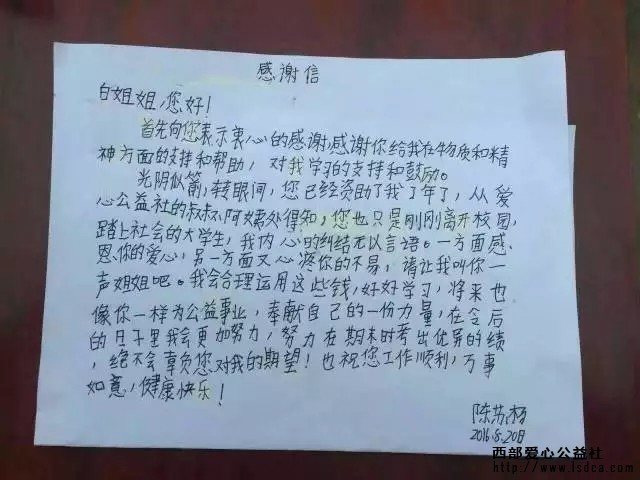 感谢信
白姐姐,您好!
首先向您表示衷心的感谢,感谢你给我在物质和精
神方面的支持和帮助,对我学习的支持和鼓励。
光阴似箭,转眼间,您已经资助了我了年了,从爱
心公益社的叔叔、阿姨处得知,您也只是刚刚离开校园,
踏上社会的大学生,我内心的纠结无以言语。一方面感
恩你的爱心,另一方面又心疼你的不易,请让我叫你一
声姐姐吧。我会合理运用这些钱,好好学习,将来也
像你一样为公益事业,奉献自己的一份力量,在今后
的日子里我会更加努力,努力在期末时考出优异的绩
,绝不会辜负您对我的期望!也祝您工作顺利,万事
如意,健康快乐!
陈苏杨
2016.8.20日
西部爱心公益社
http://www.lsdca.com